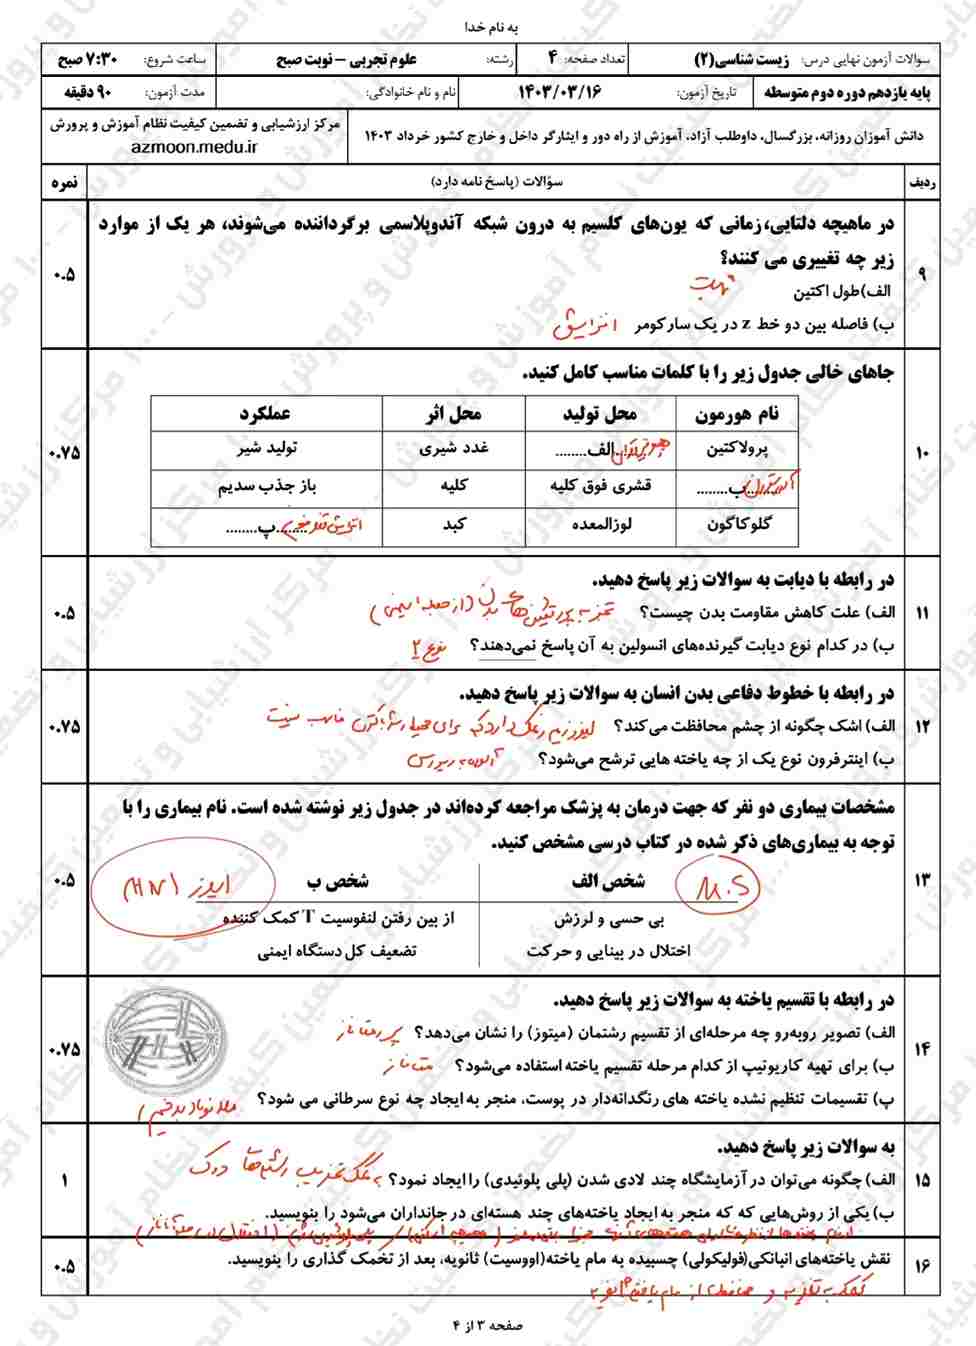 به نام خدا
سوالات آزمون نهایی درس: زیست شناسی(۲)
تعداد صفحه: ۴
رشته: علوم تجربی – نوبت صبح
ساعت شروع: ۷:۳۰ صبح
پایه یازدهم دوره دوم متوسطه
تاریخ آزمون: ۱۴۰۳/۰۳/۱۶
نام و نام خانوادگی:
مدت آزمون: ۹۰ دقیقه
دانش آموزان روزانه، بزرگسال، داوطلب آزاد، آموزش از راه دور و ایثارگر داخل و خارج کشور خرداد ۱۴۰۳
مرکز ارزشیابی و تضمین کیفیت نظام آموزش و پرورش
azmoon.medu.ir
ردیف
سؤالات (پاسخ نامه دارد)
نمره
۹
در ماهیچه دلتایی، زمانی که یون‌های کلسیم به درون شبکه آندوپلاسمی برگردانده می‌شوند، هر یک از موارد
زیر چه تغییری می کنند؟
۰.۵
الف)طول اکتین ثابت
ب) فاصله بین دو خط z در یک سارکومر افزایش
۱۰
جاهای خالی جدول زیر را با کلمات مناسب کامل کنید.
۰.۷۵
نام هورمون محل تولید محل اثر عملکرد
پرولاکتین ....الف........ غدد شیری تولید شیر
........ب........ قشری فوق کلیه کلیه باز جذب سدیم
گلوکاگون لوزالمعده کبد ........پ........
۱۱
در رابطه با دیابت به سوالات زیر پاسخ دهید.
۰.۵
الف) علت کاهش مقاومت بدن چیست؟ تجزیه پروتئین‌های بدن (از جمله ایمنی)
ب) در کدام نوع دیابت گیرنده‌های انسولین به آن پاسخ نمی‌دهند؟ نوع ۲
۱۲
در رابطه با خطوط دفاعی بدن انسان به سوالات زیر پاسخ دهید.
۰.۷۵
الف) اشک چگونه از چشم محافظت می‌کند؟ لیزوزیم و نمک دارد که برای محیط رشد باکتری مناسب نیست
ب) اینترفرون نوع یک از چه یاخته هایی ترشح می‌شود؟ آلوده به ویروس
۱۳
مشخصات بیماری دو نفر که جهت درمان به پزشک مراجعه کرده‌اند در جدول زیر نوشته شده است. نام بیماری را با
توجه به بیماری‌های ذکر شده در کتاب درسی مشخص کنید.
۰.۵
شخص الف M.S
شخص ب ایدز
بی حسی و لرزش
از بین رفتن لنفوسیت T کمک کننده
اختلال در بینایی و حرکت
تضعیف کل دستگاه ایمنی
۱۴
در رابطه با تقسیم یاخته به سوالات زیر پاسخ دهید.
۰.۷۵
الف) تصویر روبه‌رو چه مرحله‌ای از تقسیم رشتمان (میتوز) را نشان می‌دهد؟ پرومتافاز
ب) برای تهیه کاریوتیپ از کدام مرحله تقسیم یاخته استفاده می‌شود؟ متافاز
پ) تقسیمات تنظیم نشده یاخته های رنگدانه‌دار در پوست، منجر به ایجاد چه نوع سرطانی می شود؟ ملانوما (بدخیم)
۱۵
به سوالات زیر پاسخ دهید.
۱
الف) چگونه می‌توان در آزمایشگاه چند لادی شدن (پلی پلوئیدی) را ایجاد نمود؟ به کمک تخریب رشته‌های دوک
ب) یکی از روش‌هایی که که منجر به ایجاد یاخته‌های چند هسته‌ای در جانداران می‌شود را بنویسید.
۱۶
نقش یاخته‌های انبانکی(فولیکولی) چسبیده به مام یاخته(اووسیت) ثانویه، بعد از تخمک گذاری را بنویسید.
۰.۵
کمک به تغذیه و محافظت از مام یاخته ثانویه
صفحه ۳ از ۴